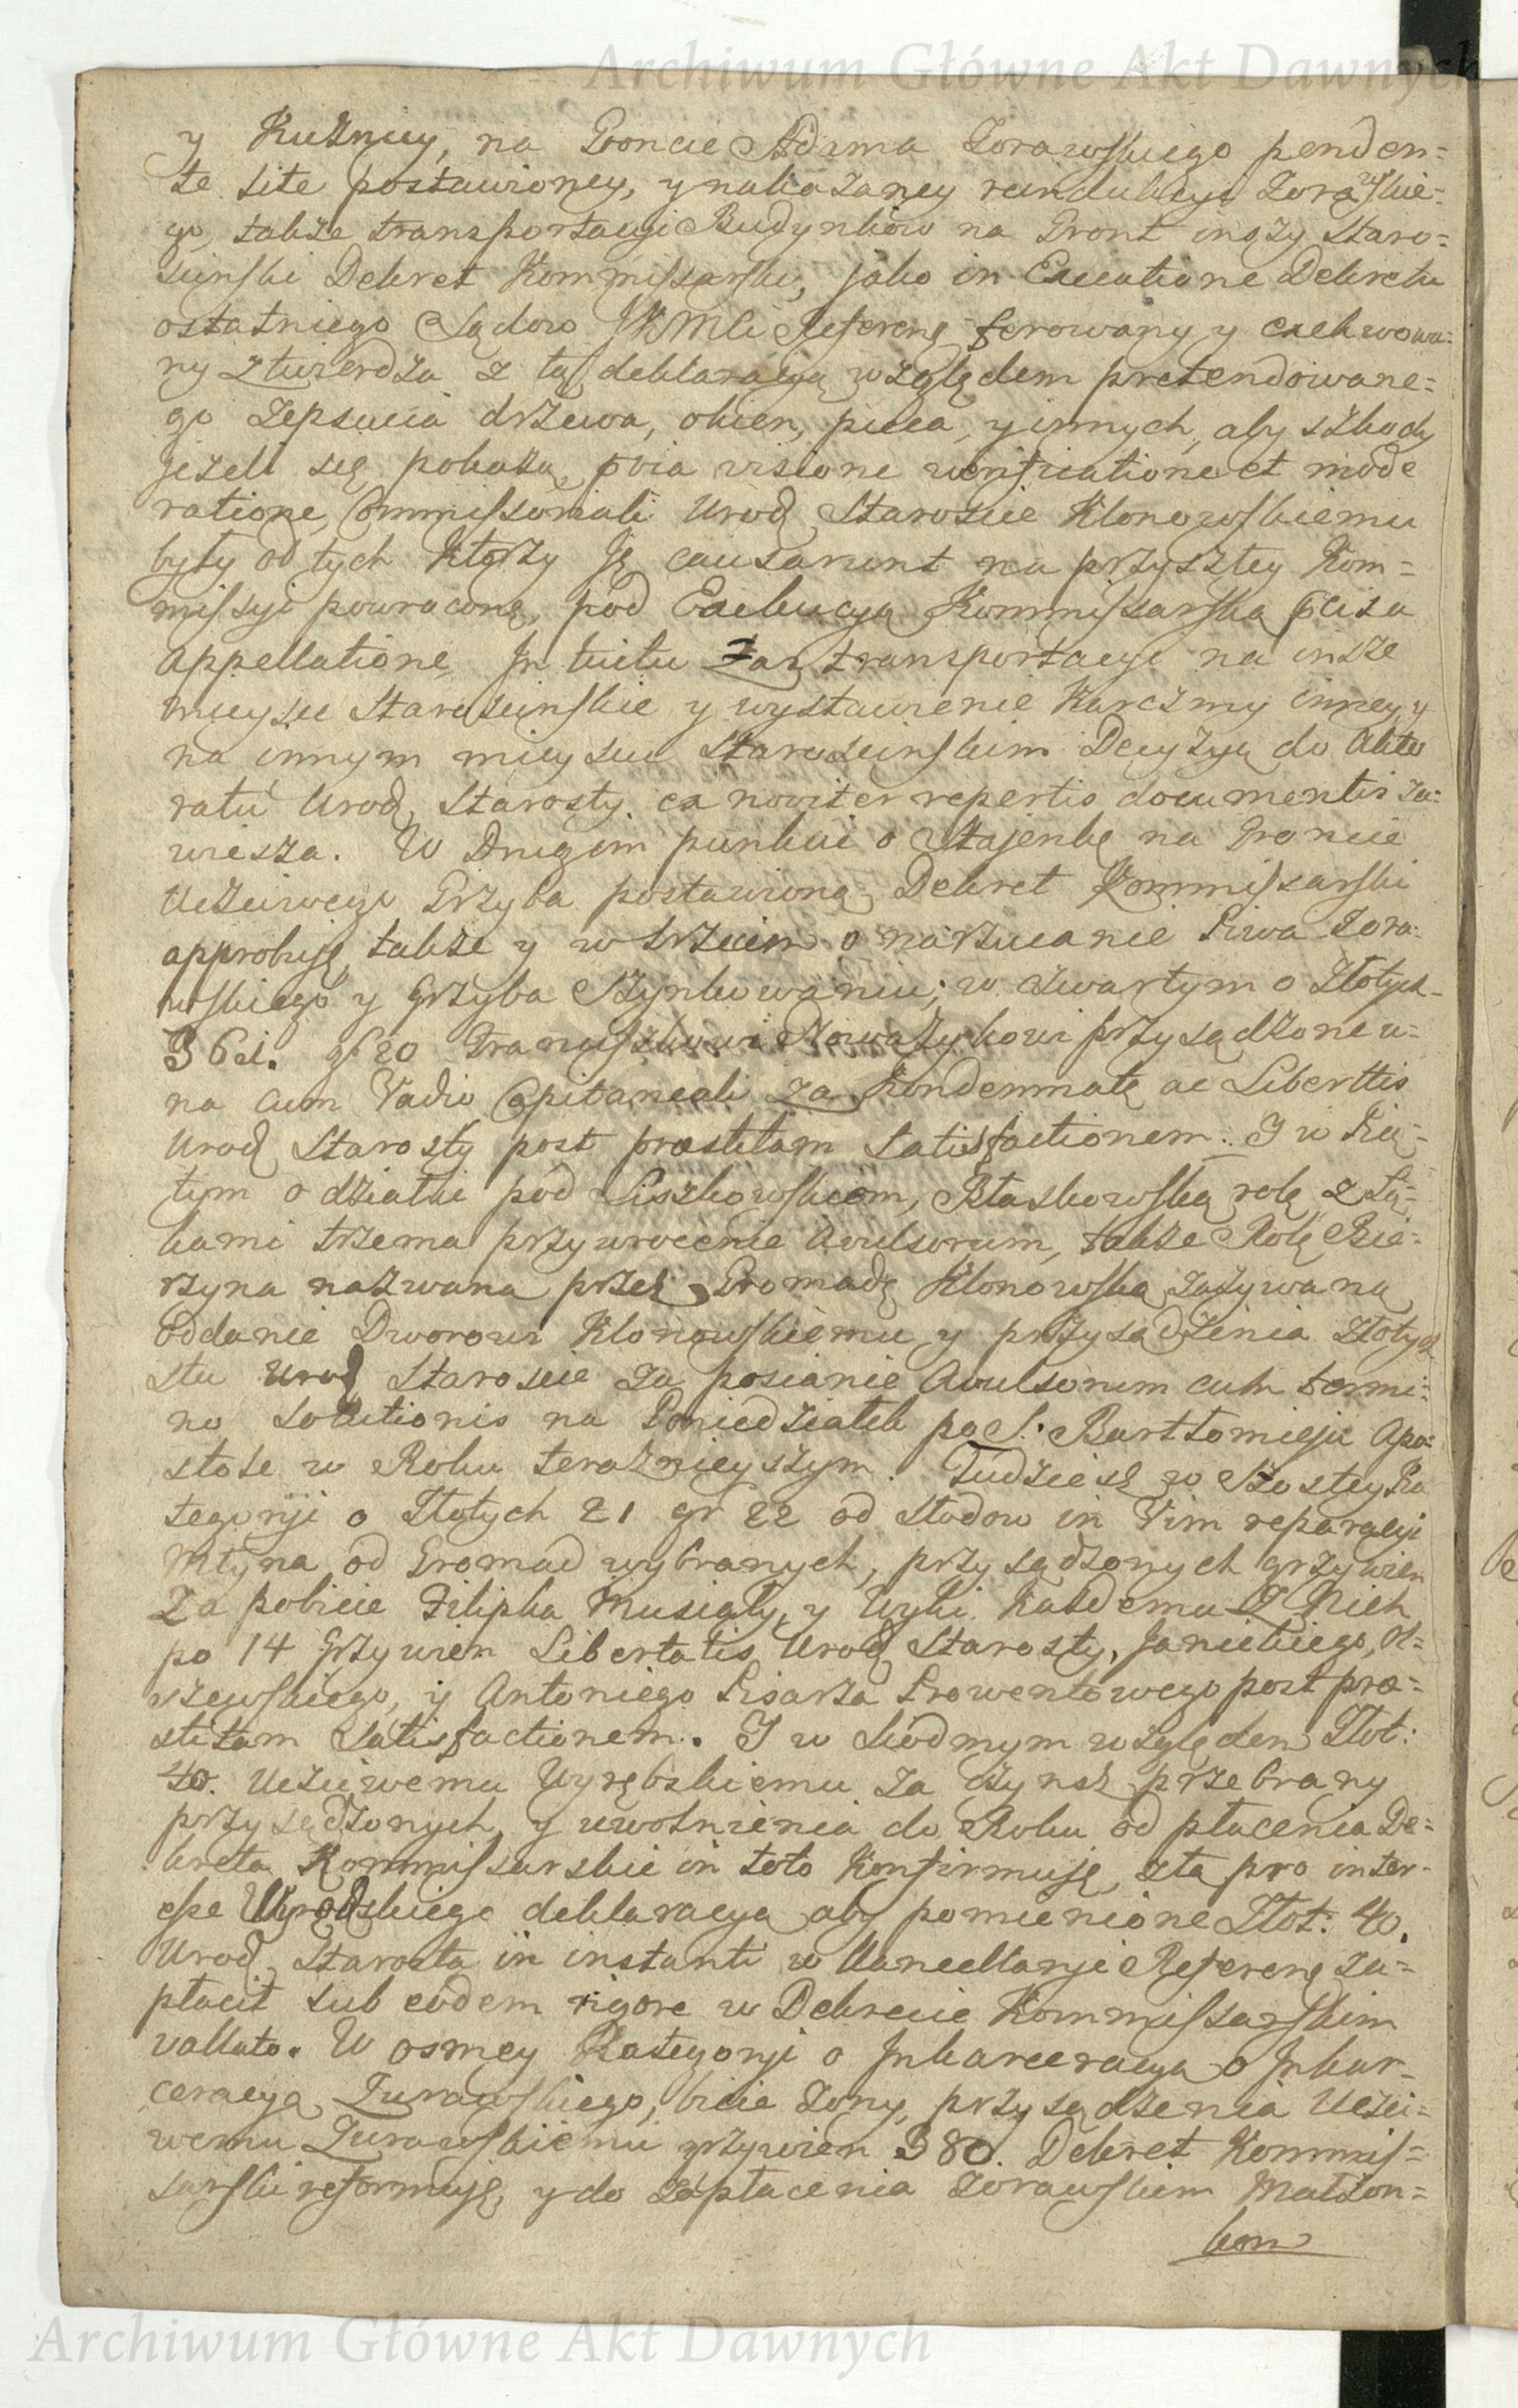 Archiwum Główne Akt Dawnych
y Kuźnicy, na Groncie Adama Zorawskiego penden=
te lite postawioney, y nakazaney rundukcyi Zorawskie=
go, także transportacyi Budynkow na Gront inszy Staro=
scinski Dekret Kommissarski, jako in Executione Dekretu
ostatniego Sądow JKMCi Referen: ferowany y exekwowa=
ny ztwierdza z tą deklaracyą względem pretendowane=
go zepsucia drzewa, okien, pieca, y innych, aby szkody
jezeli się pokażą, pvia visione verificatione et mode
ratione Commissoriali Urod: Staroscie Klonowskiemu
były od tych ktorzy Ję causarunt na przyszłey Kom=
missyi powrocone, pod Exekucyą Kommissarską Excisa
appellatione. Intuitu zaś transportacyi na insze
mieysce Staroscinskie y wystawienie Karczmy inney y
na innym mieyscu Staroscinskim Decyzyę do Akto
ratu Urod: Starosty ex noviter repertis documentis za=
wiesza. W Drugim punkcie o Stajenkę na Groncie
Uczciwego Grzyba postawioną Dekret Kommissarski
approbuje, także y w trzecim o narzucanie Piwa Zora=
wskiego y Grzyba Szynkowaniu; w czwartym o Złotych
36 d. gr 20 Franciszkowi Noważykowi przysądzone u=
na cum Vadio Capitaneali za Kondemnatę ac Liberttis
Urod: Starosty post præstitam Satisfactionem. I w Pią=
tym o działki pod Liszkowskiem, Błaszkowską rolę z Łą=
kami trzema przywrocenie Avulsorum, także Rolę Bie=
rzyna nazwana przez Gromadę Klonowską zażywaną
oddanie Dworowi Klonowskiemu y przysądzenia Złotych
stu Urod: Staroscie za posianie Avulsorum cum termi=
no Solutionis na Poniedziałek po S. Bartłomieju Apo=
stole w Roku teraznieyszym. Tudziesz w Szostey Ka
tegoryi o Złotych 21 gr 22 od Słodow in Vim reparacyi
Młyna od Gromad wybranych, przysądzonych grzywien
Za pobicie Filipka Musiały, y Wyki każdemu z Nich
po 14 Grzywien Libertatis Urod: Starosty, Janickiego, Ol=
szewskiego, y Antoniego Pisarza Prowentowego post præ=
stitam Satisfactionem. I w Siodmym względem Złot:
40. Uczciwemu Wyrębskiemu za czynsz przebrany
przysądzonych, y uwolnienia do Roku od płacenia De=
kreta Kommissarskie in toto Konfirmuje, z tą pro inter=
esse Wyrębskiego deklaracyą aby pomienione Złot: 40.
Urod: Starosta in instanti w Kancellaryi Referen: za=
płacił sub eodem rigore w Dekrecie Kommissarskim
vallato. W osmey Kategoryi o Inkarceracyą o Inkar=
ceracyą Zurawskiego, bicie Zony, przysądzenia Uczci=
wemu Zurawskiemu grzywien 380. Dekret Kommis=
sarski reformuje, y do zapłacenia Zorawskim Małżon=
kom
Archiwum Główne Akt Dawnych